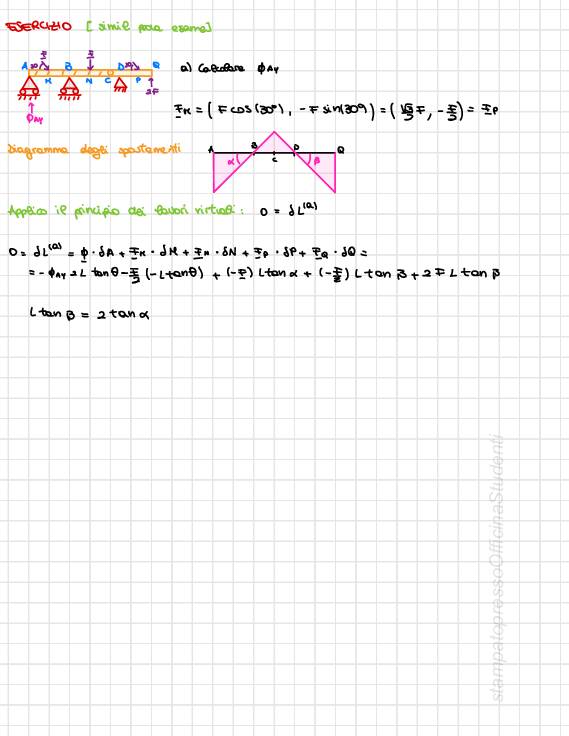 ESERCIZIO [simil prova esame]
F F
A 30° B D 30° Q
M N C P
2F
ϕAy
a) Calcolare ϕAy
F_M = (F cos(30°), -F sin(30°)) = (√3/2 F, -F/2) = F_P
Diagramma degli spostamenti
A B D Q
α C β
Applico il principio dei lavori virtuali: 0 = δL^(a)
0 = δL^(a) = ϕ · δA + F_M · δM + F_N · δN + F_P · δP + F_Q · δQ =
= -ϕAy 2L tanθ - F/2 (-L tanθ) + (-F) L tanα + (-F/2) L tan β + 2F L tan β
L tan β = 2 tan α
stampatopressoOfficinaStudenti